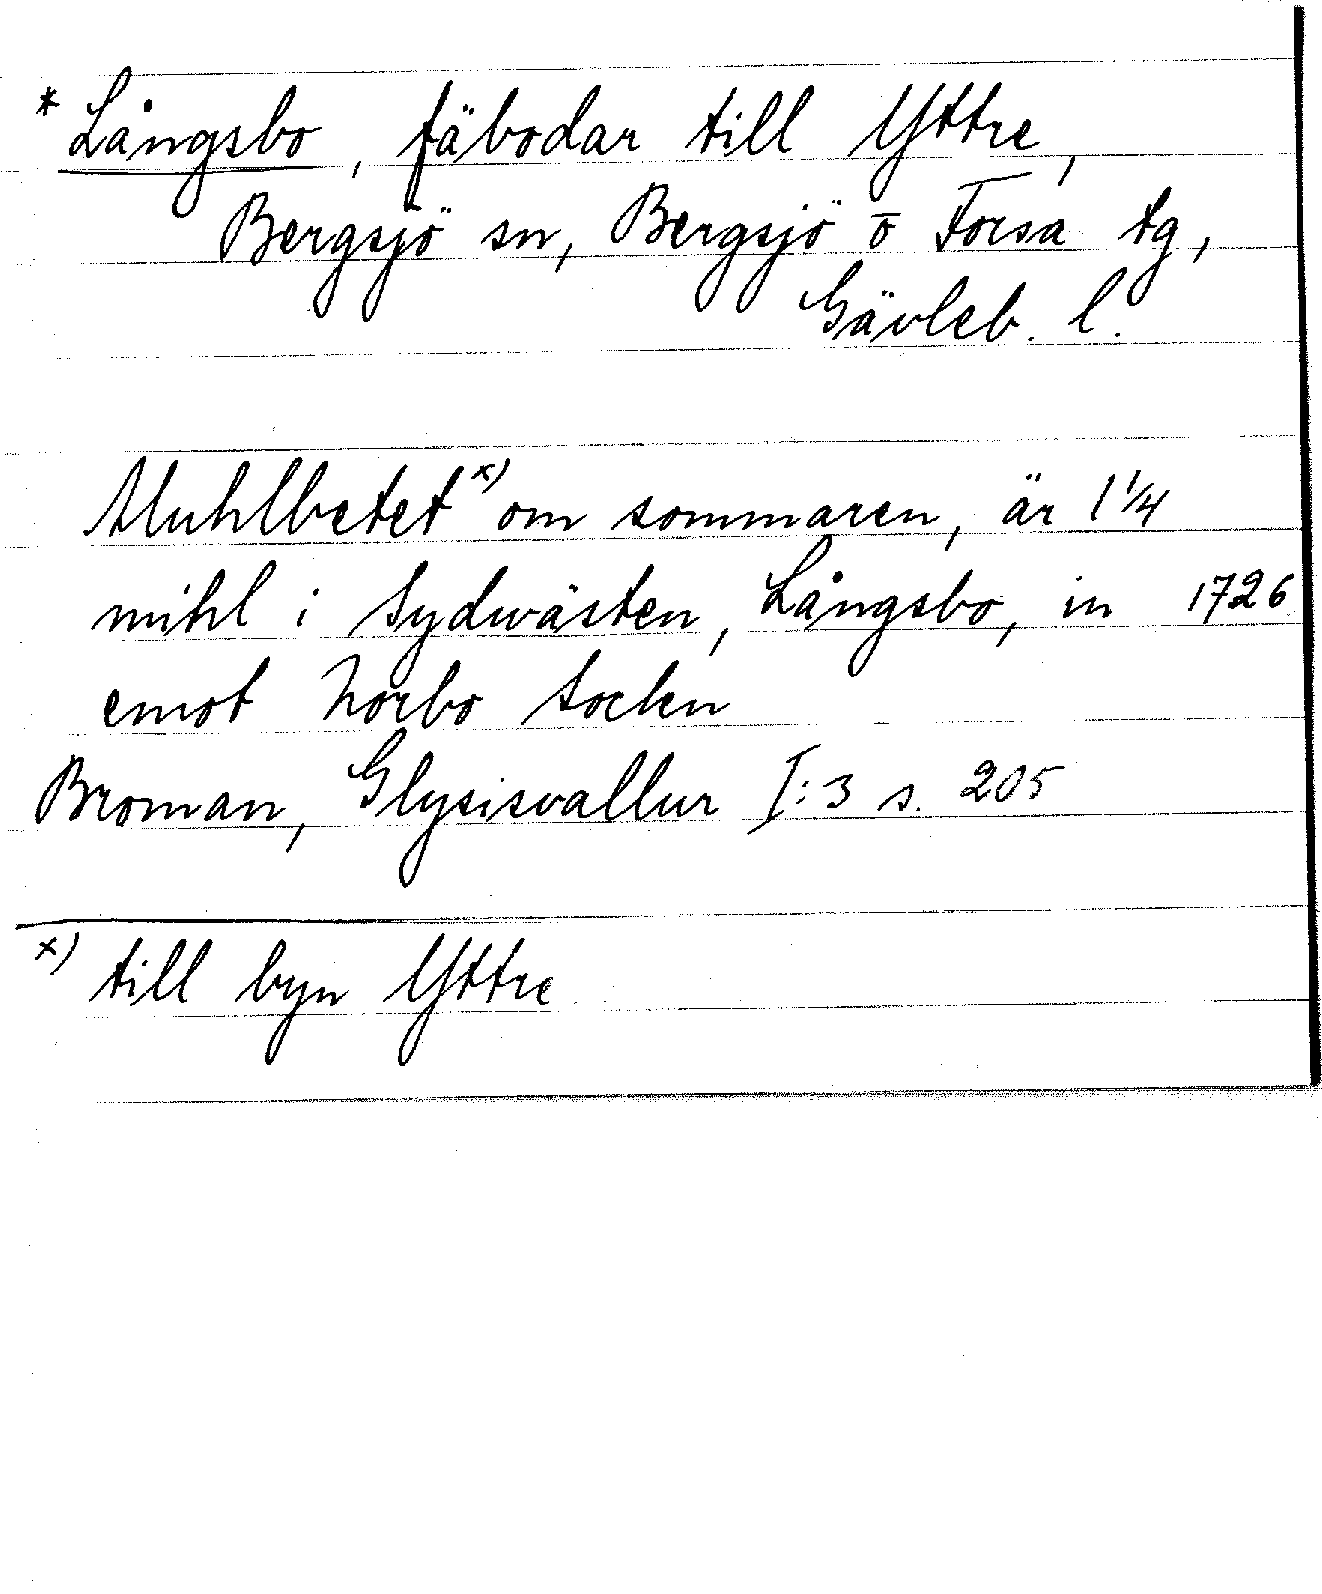 * Långsbo, fäbodar till Yttre,
Bergsjö sn, Bergsjö o Forsa tg,
Gävleb. l.
Muhlbetet x) om sommaren, är 1 1/4
mihl i Sydwästen, Långsbo, in 1726
emot Norbo Socken
Broman, Glysisvallur I:3 s. 205
x) till byn Yttre